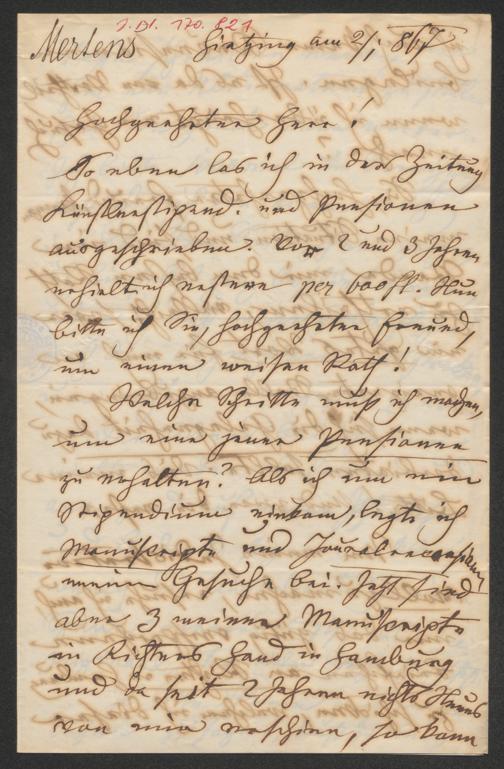 J. Bl. 170.821
Mertens
Hietzing am 2/1 867
Hochgeehrter Herr!
So eben las ich in der Zeitung
Künstlerstipend. und Pensionen
ausgeschrieben. Vor 2 und 3 Jahren
erhielt ich erstere per 600 fl. Nun
bitte ich Sie, hochgeehrter Freund,
um einen weisen Rath!
Welche Schritte muß ich machen,
um eine jener Pensionen
zu erhalten? Als ich um ein
Stipendium einkam, legte ich
Manuskripte und Journalrecensionen
meinem Gesuche bei. Jetzt sind
aber 3 meiner Manuskripte
in Richters Hand in Hamburg
und da seit 2 Jahren nichts Neues
von mir erschien, so kann